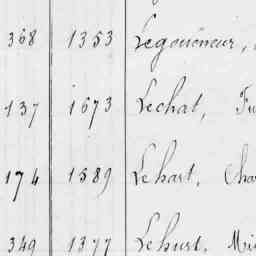 368 1353 Legouëneur,
137 1673 Lechat, Fu
174 1589 Lehart, Cha
349 1377 Lehurt, Mi